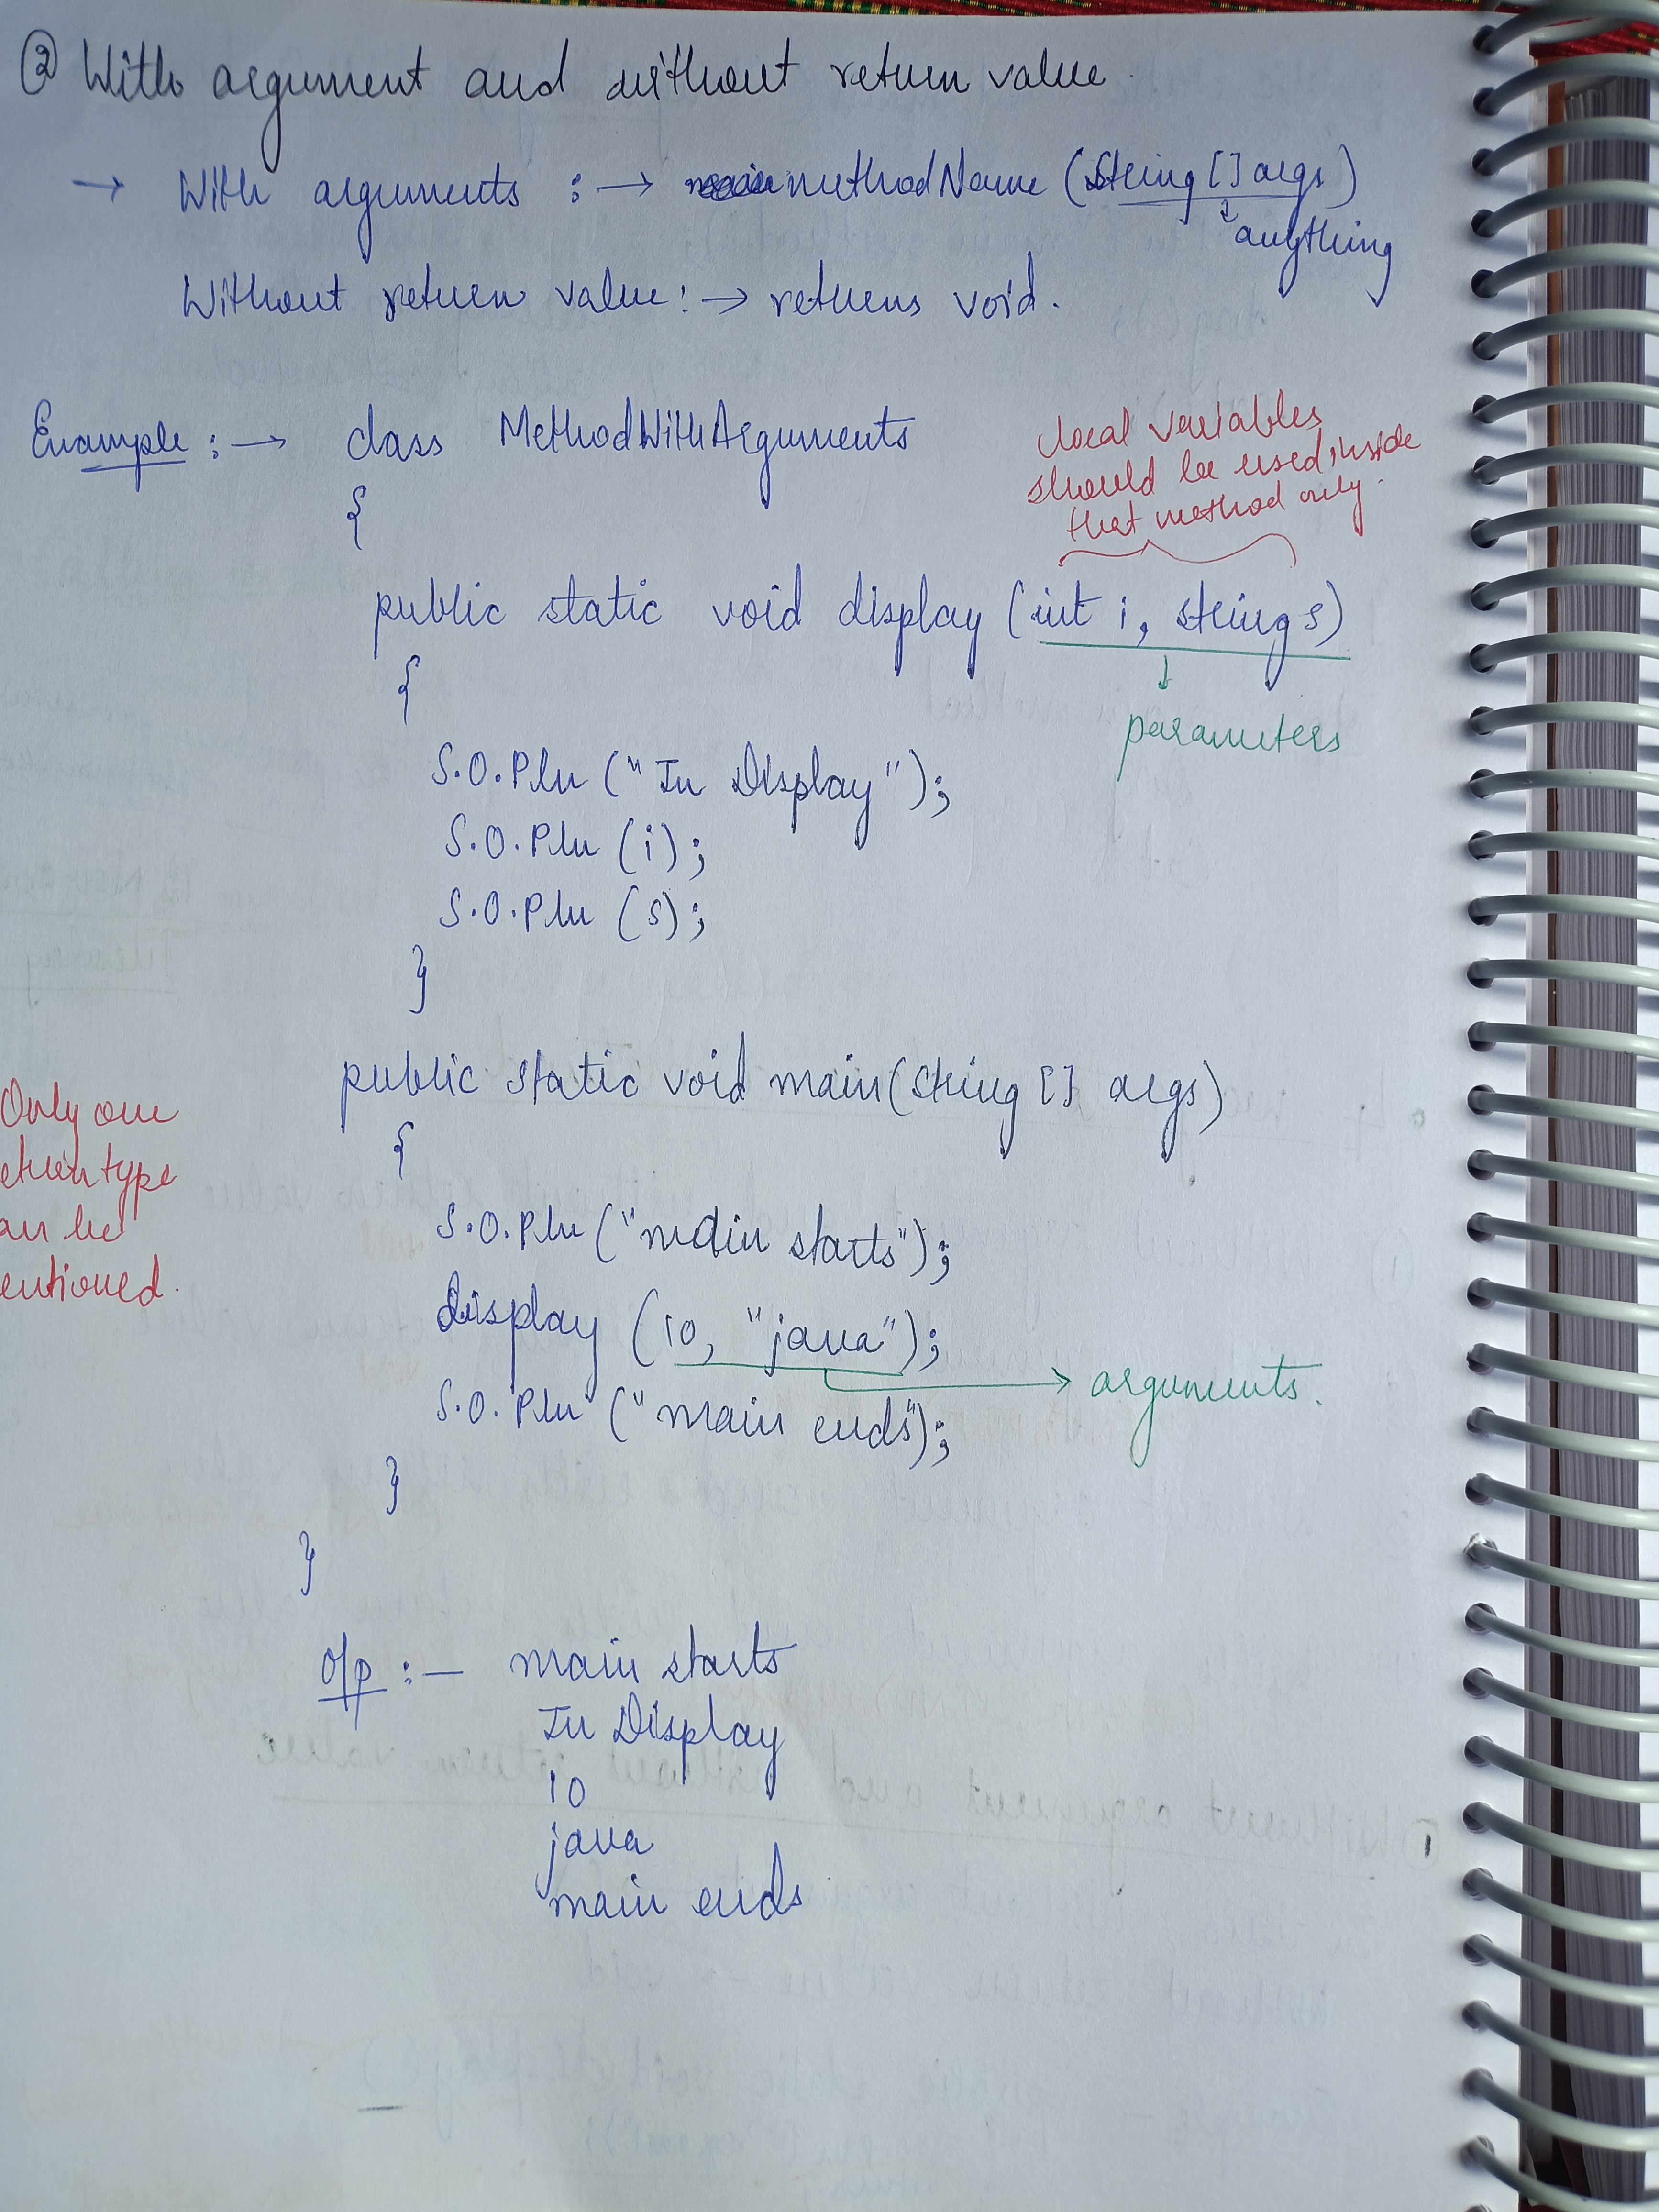 ② With argument and without return value
→ With arguments :→ methodName (String [] args)
↓ anything
Without return value :→ returns void.
Example :→ class MethodWithArguments
{
local variables
should be used inside
that method only.
public static void display (int i, string s)
{
↓
parameters
S.O.Pln ("In Display");
S.O.Pln (i);
S.O.Pln (s);
}
public static void main(String [] args)
{
Only one
eturn type
an be
entioned.
S.O.Pln ("main starts");
display (10, "java");
→ arguments.
S.O.Pln ("main ends");
}
}
O/p :— main starts
In Display
10
java
main ends